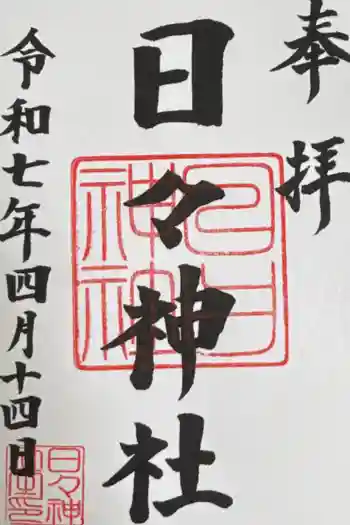 奉拝
日々神社
令和七年四月十四日
日々
神社
日々神